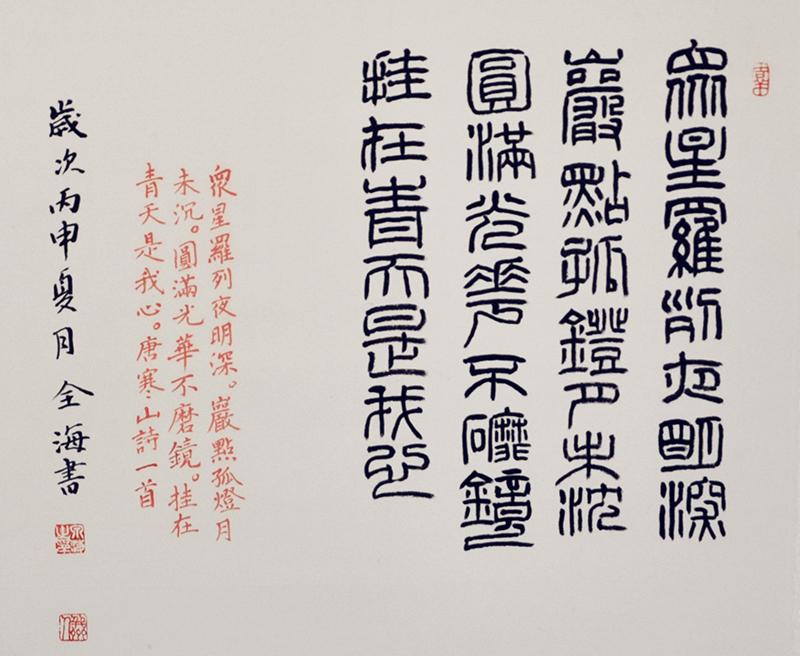 眾星羅列夜明深
巖點孤鐙月未沈
圓滿光華不磨鏡
挂在青天是我心
眾星羅列夜明深。巖點孤燈月
未沉。圓滿光華不磨鏡。挂在
青天是我心。唐寒山詩一首
歲次丙申夏月 全海書